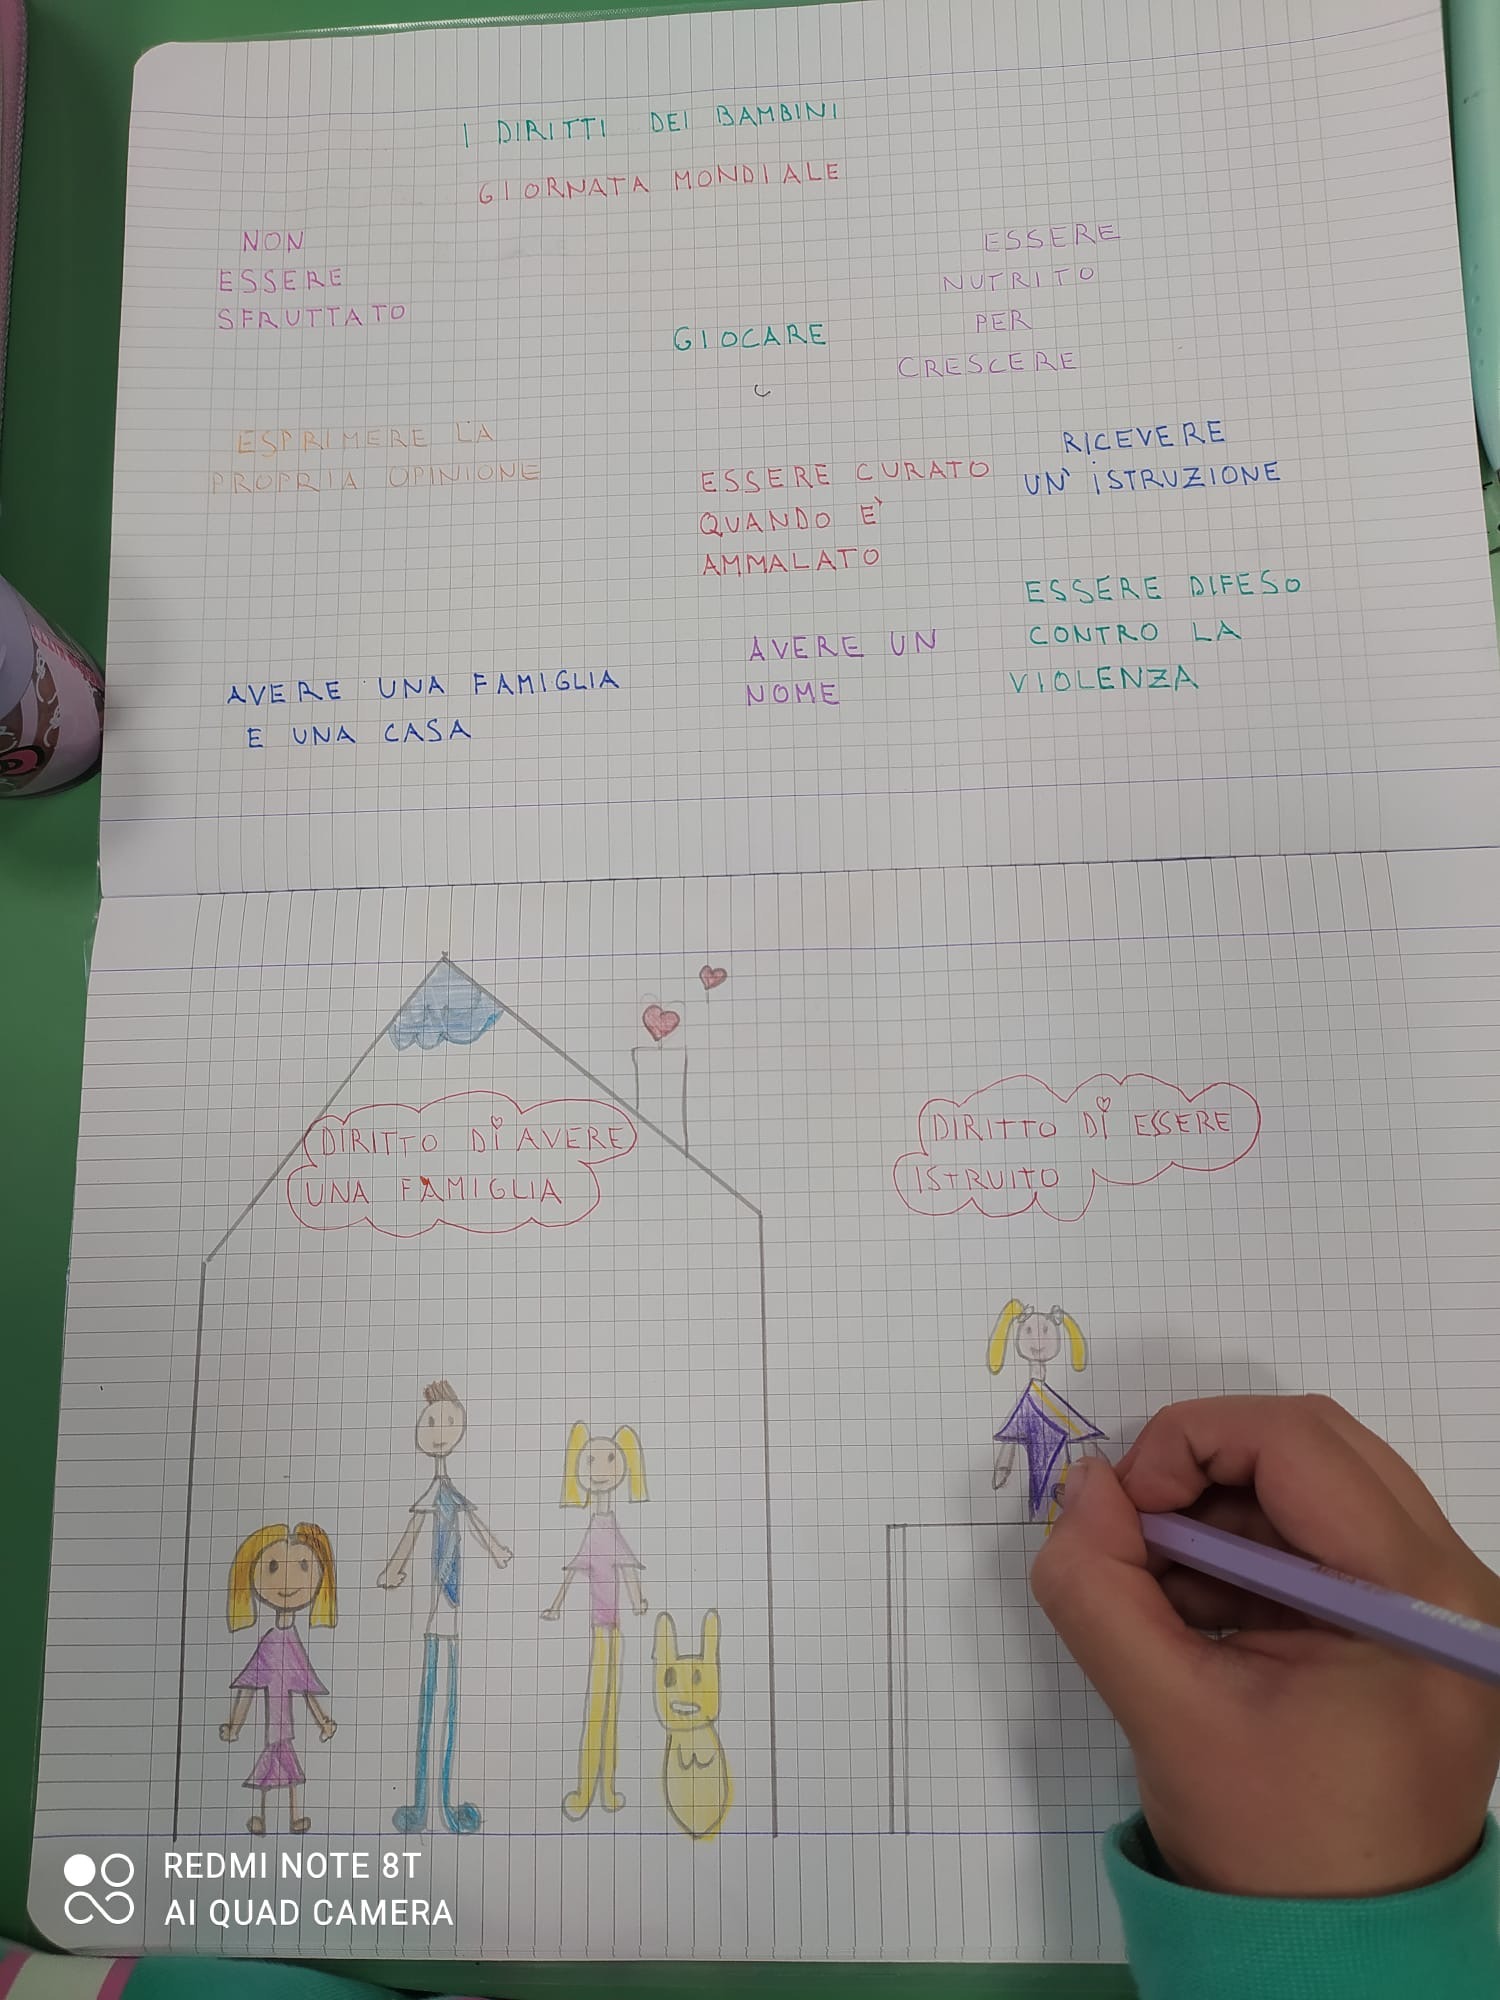 I DIRITTI DEI BAMBINI
GIORNATA MONDIALE
NON
ESSERE
SFRUTTATO
GIOCARE
ESSERE
NUTRITO
PER
CRESCERE
ESPRIMERE LA
PROPRIA OPINIONE
ESSERE CURATO
QUANDO E'
AMMALATO
RICEVERE
UN' ISTRUZIONE
AVERE UNA FAMIGLIA
E UNA CASA
AVERE UN
NOME
ESSERE DIFESO
CONTRO LA
VIOLENZA
DIRITTO DI AVERE
UNA FAMIGLIA
DIRITTO DI ESSERE
ISTRUITO
REDMI NOTE 8T
AI QUAD CAMERA